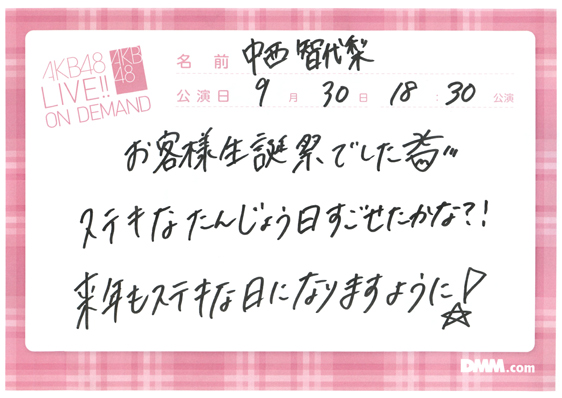 AKB48
LIVE!!
ON DEMAND
AKB
48
名前 中西智代梨
公演日 9月30日 18:30公演
お客様生誕祭でした
ステキなたんじょう日すごせたかな?!
来年もステキな日になりますように!
DMM.com